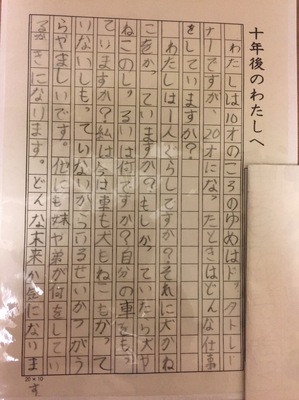 十年後のわたしへ
わたしは10才のころのゆめはドックトレー
ナーですが、20才になったときはどんな仕事
をしていますか?
わたしは一人ぐらしてすか?それに犬かね
こをかっていますか?もしかっていたら犬や
ねこのしゅるいは何ですか?自分の車をもっ
ていますか?私は今は車も犬もねこもかって
いないしもっていないから
らやましいです。他にも妹や弟が何をしてい
るか気になります。どんな未来か楽になりま
す
20×10